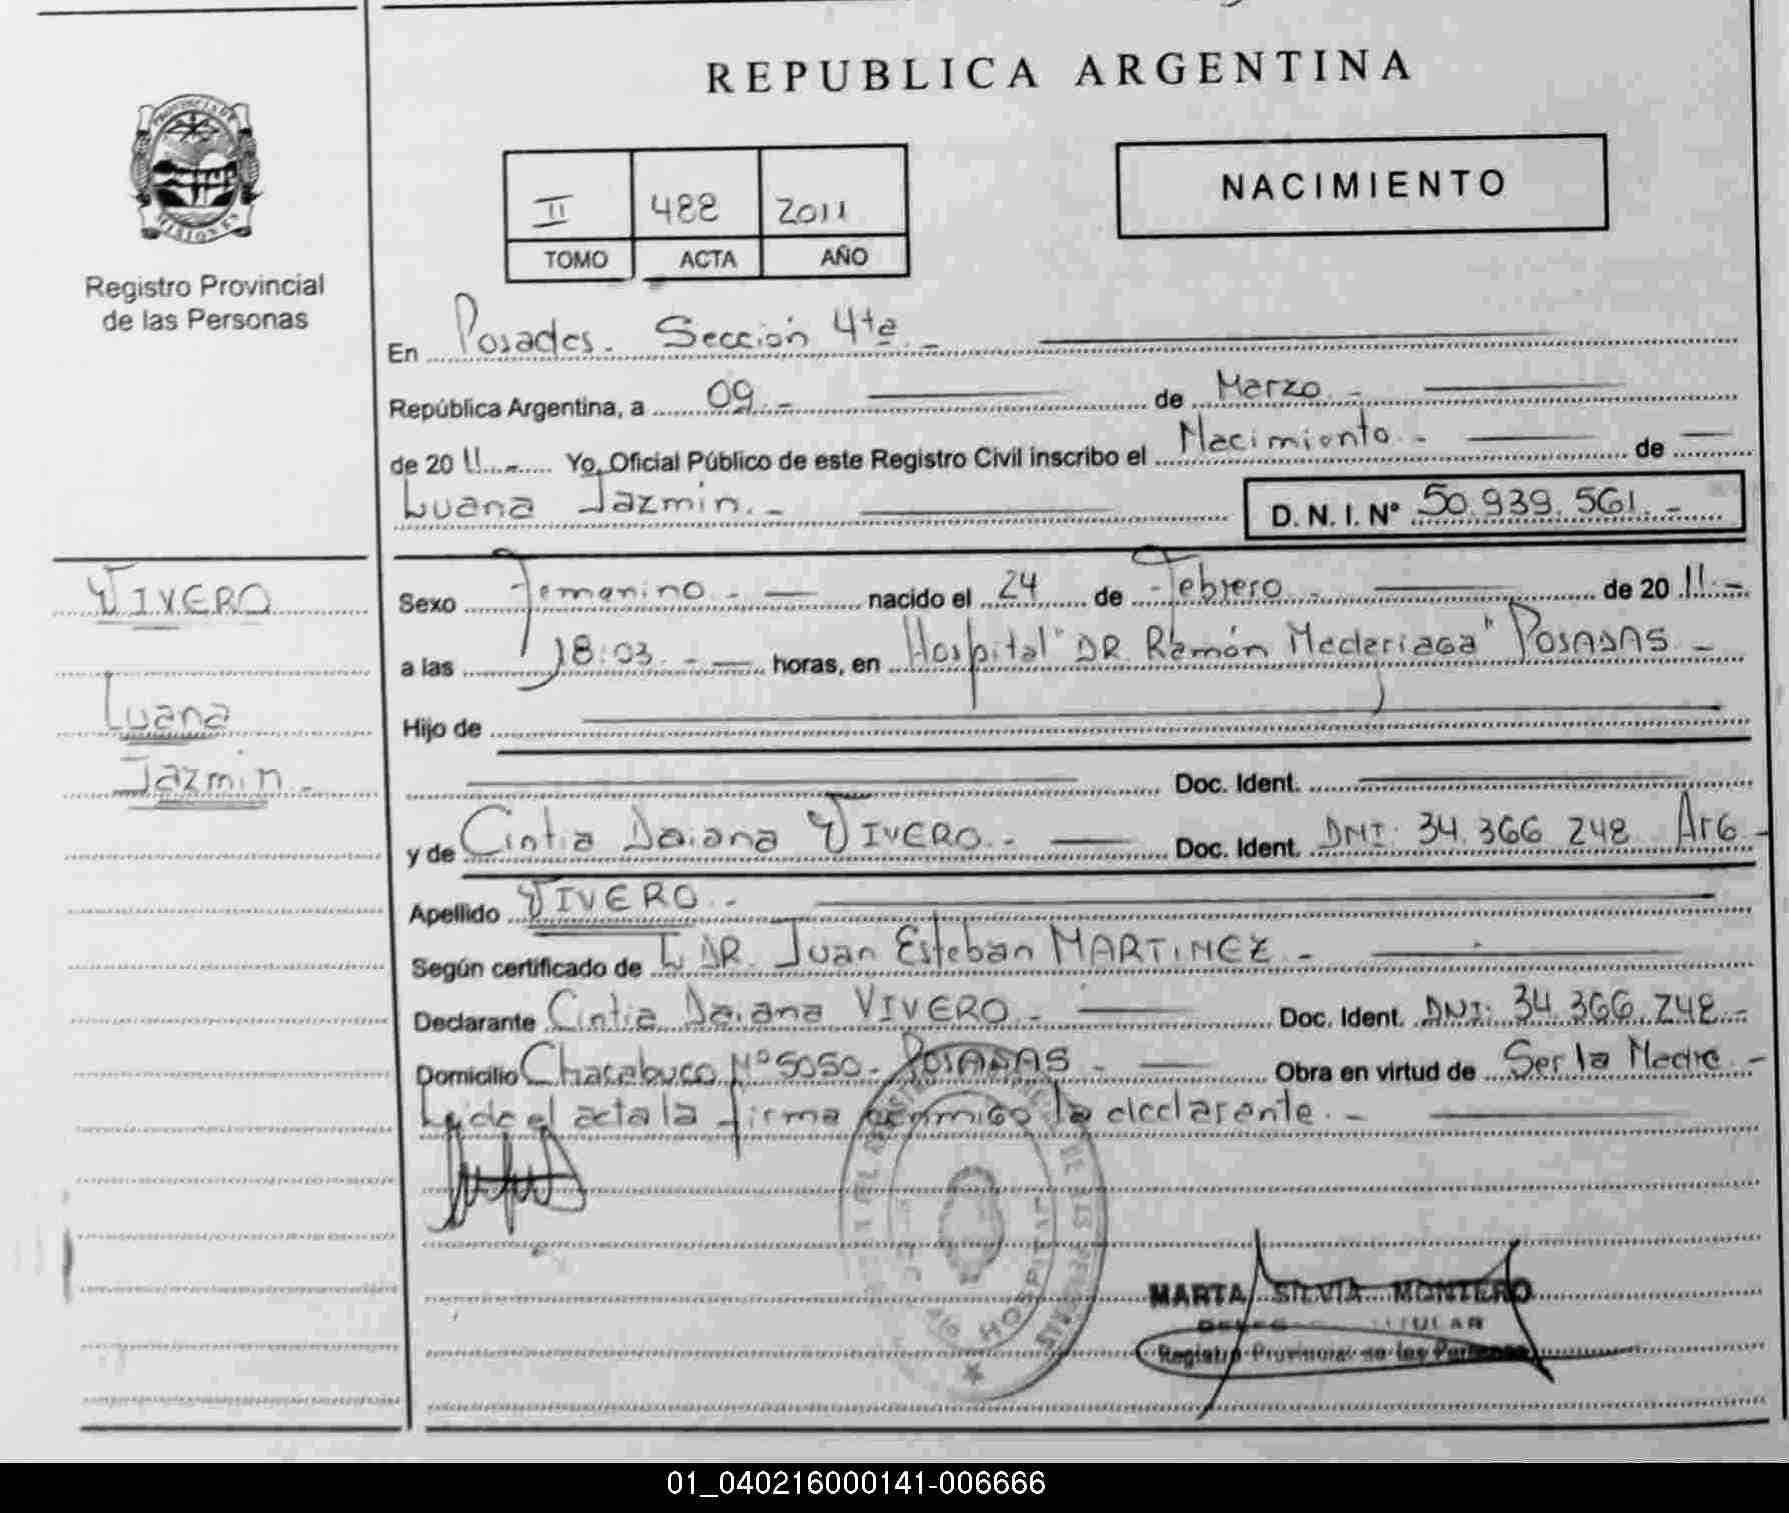 REPUBLICA ARGENTINA
PROVINCIA DE
MISIONES
Registro Provincial
de las Personas
II 488 2011
TOMO ACTA AÑO
NACIMIENTO
En Posadas. Sección 4ta. -
República Argentina, a 09. - de Marzo. -
de 2011. - Yo, Oficial Público de este Registro Civil inscribo el Nacimiento. - de
Luana Jazmin. -
D. N. I. N° 50.939.561. -
VIVERO
Luana
Jazmin. -
Sexo Femenino. - nacido el 24 de Febrero. - de 2011. -
a las 18:03. - horas, en Hospital "DR. Ramón Madariaga" POSADAS. -
Hijo de
Doc. Ident.
y de Cintia Daiana VIVERO. - Doc. Ident. DNI: 34.366.248 Arg. -
Apellido VIVERO. -
Según certificado de DR. Juan Esteban MARTINEZ. -
Declarante Cintia Daiana VIVERO. - Doc. Ident. DNI: 34.366.248. -
Domicilio Chacabuco N° 5050. POSADAS. - Obra en virtud de Ser la Madre. -
Leida el acta la firma conmigo la declarante. -
HOSPITAL
MARTA SILVIA MONTERO
TITULAR
Registro Provincial de las Personas
01_040216000141-006666